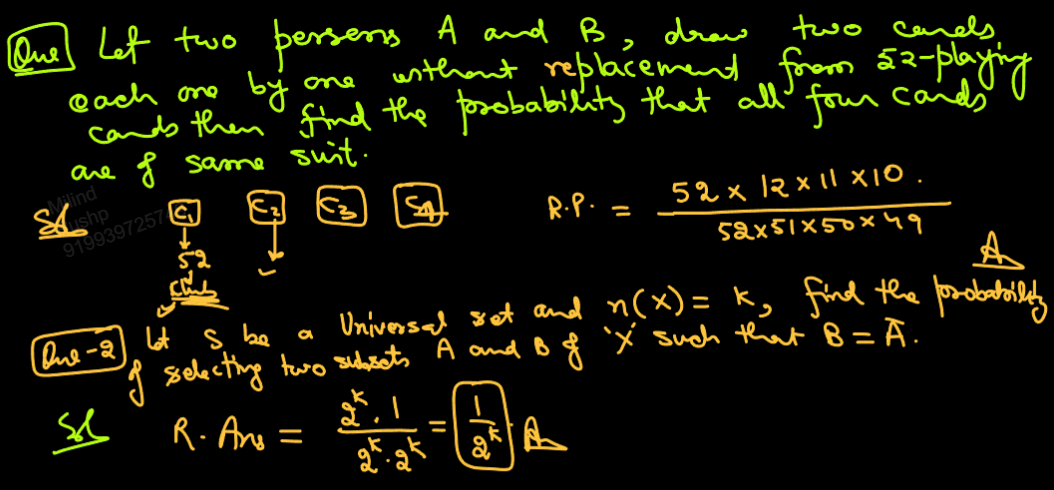 Que Let two persons A and B, draw two cards
each one by one without replacement from 52-playing
cards then find the probability that all four cards
are of same suit.
Sol C₁ C₂ C₃ C₄ R.P. = 52 × 12 × 11 × 10 .
52×51×50×49
52
Club
A
Que-2 Let S be a Universal set and n(X) = K, find the probability
of selecting two subsets A and B of 'X' such that B = Ā.
Sol R. Ans = 2^K . 1 / 2^K . 2^K = 1 / 2^K A
Milind
919939725